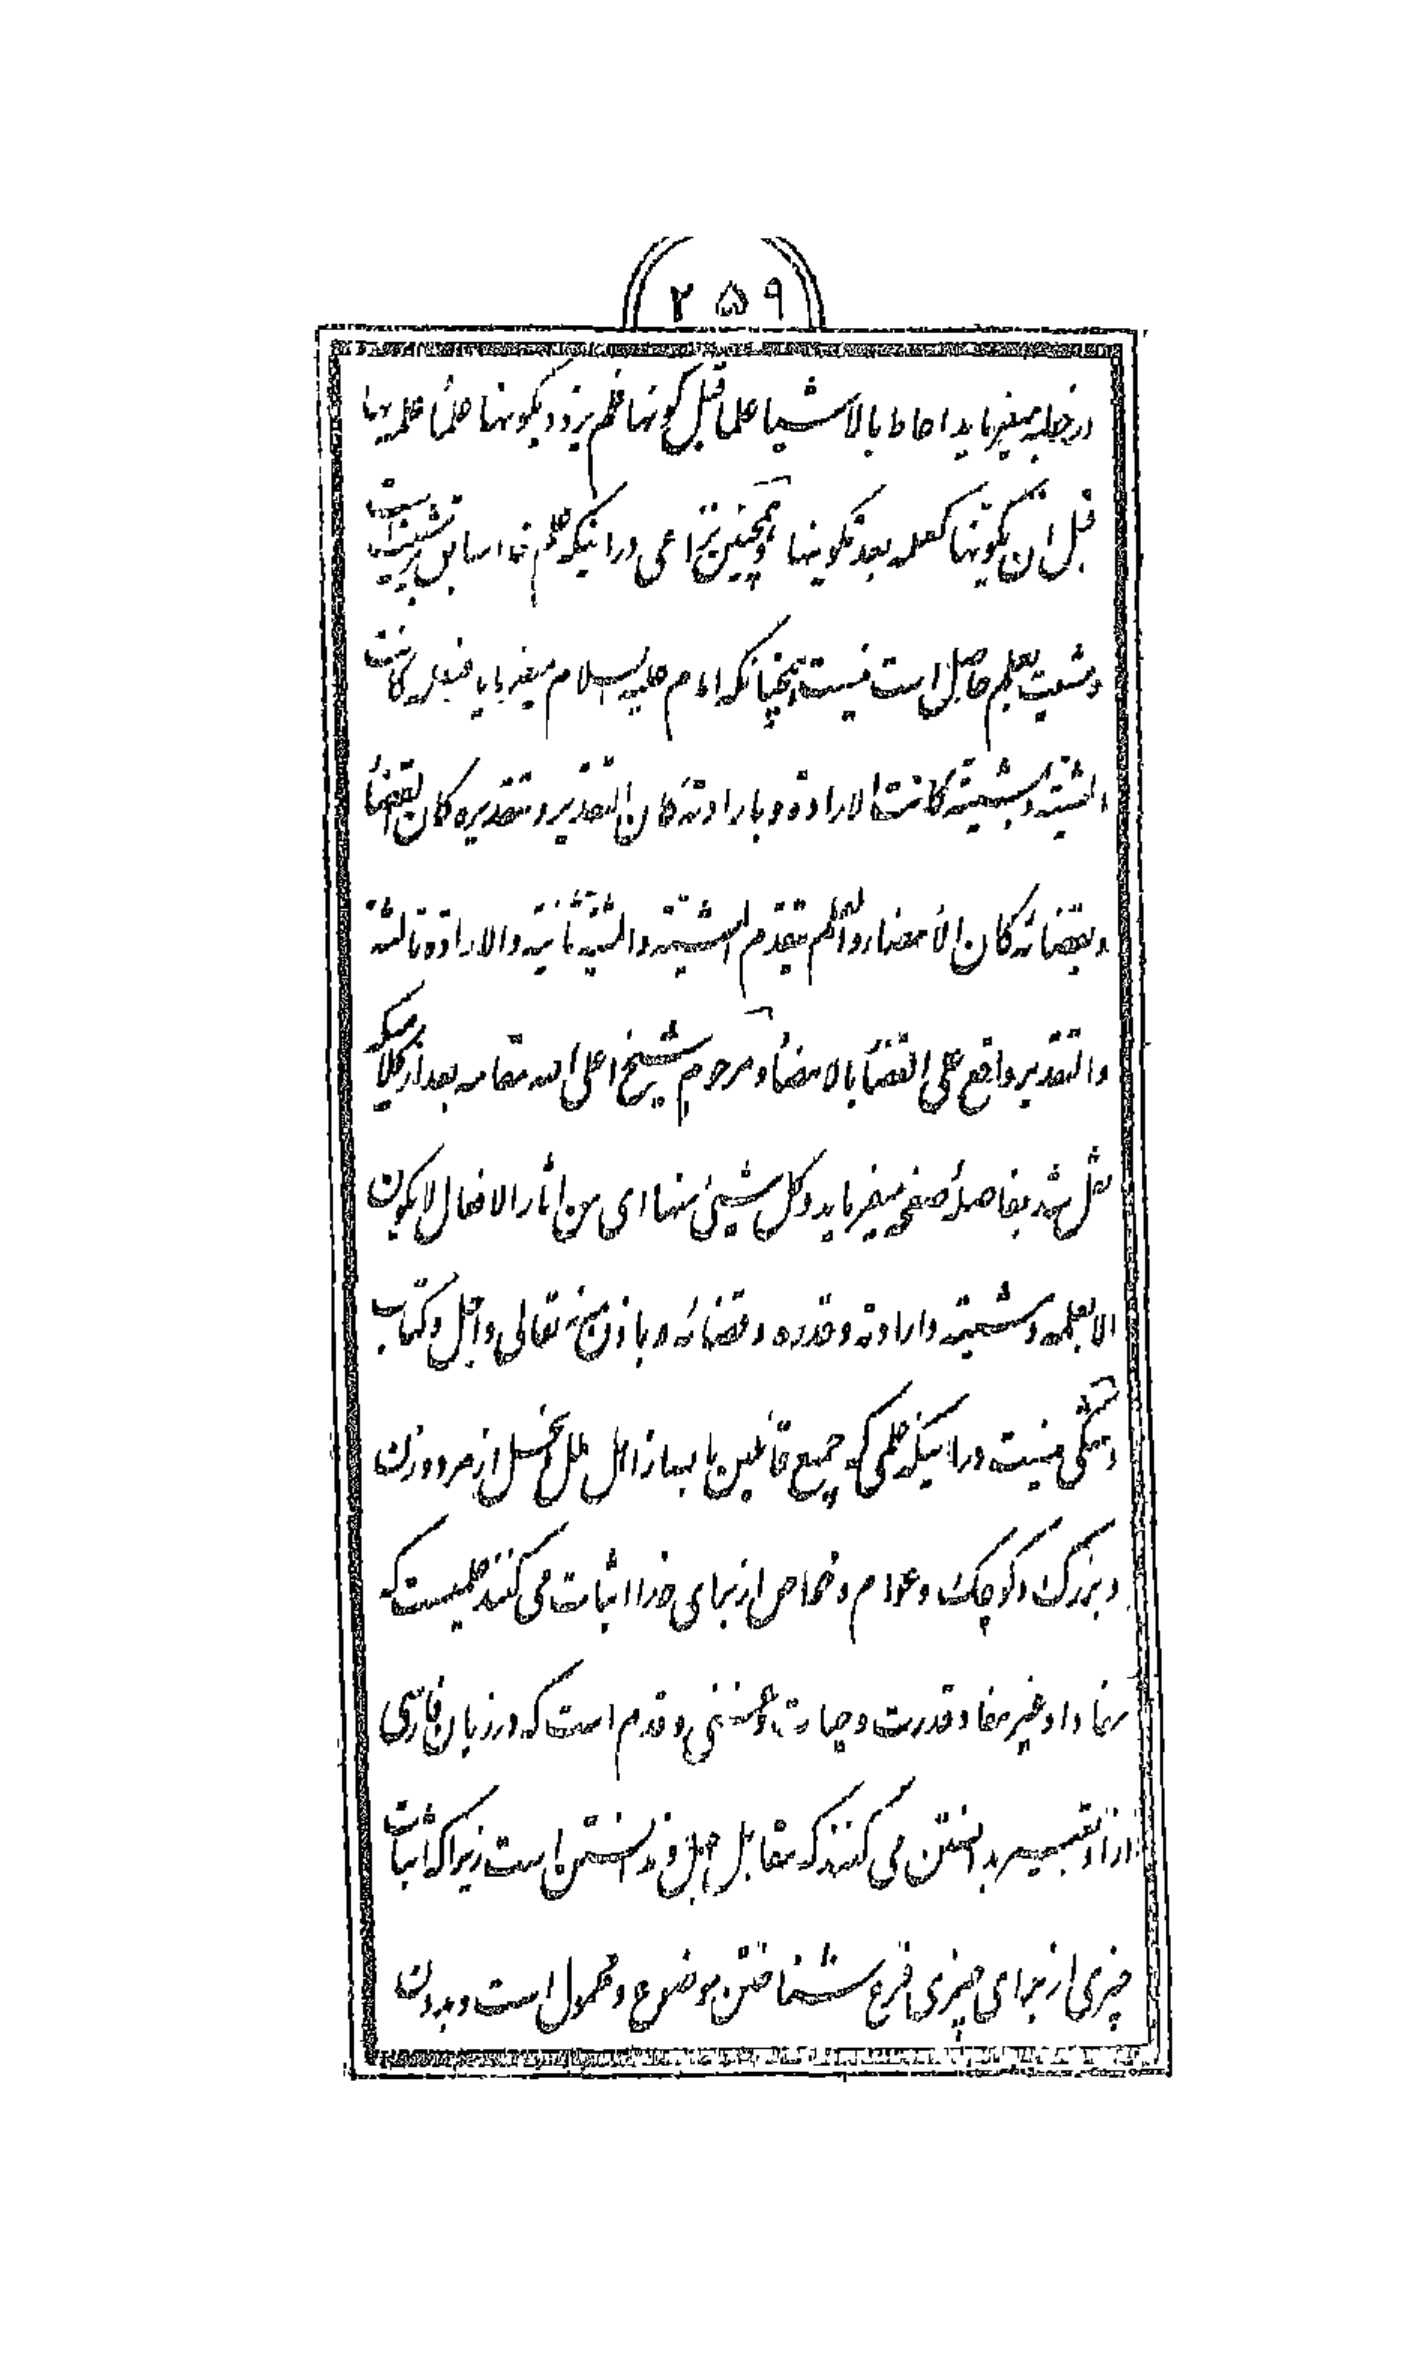 ۲۵۹
در خطبه میفرماید احاط بالاشیا علما قبل کونها فلم یزدد بکونها علماً علمه بها
قبل ان یکونها کعلمه بعد تکوینها و همچنین نزاعی در اینکه علم خدا سابق بر مشیت است
و مشیت بعلم حاصل است نیست همچنانکه امام علیه السلام میفرماید فبعلمه کانت
المشیة و بمشیته کانت الارادة و بارادته کان التقدیر و بتقدیره کان القضاء
و بقضائه کان الامضاء و العلم یتقدم المشیته و المشیة ثانیة و الارادة ثالثة
و التقدیر واقع علی القضاء بالامضاء و مرحوم شیخ اعلی الله مقامه بعد از کلامیکه
نقل شد بفاصلهٔ صفحه میفرماید و کل شیئ منها ای من اثار الافعال لا یکون
الا بعلمه و مشیته و ارادته و قدره و قضائه و باذن منه تعالی و اجل و کتاب
و شکی نیست در اینکه علمی که جمیع قائلین باسماء از اهل ملل و نحل از مرد و زن
و بزرگ و کوچک و عوام و خواص از برای خدا اثبات می کنند علمیست که
مضاد و غیر مفاد قدرت و حیات و غنی و قدم است که در زبان فارسی
از او تعبیر بدانستن می کنند که مقابل جهل و ندانستن است زیرا که اثبات
چیزی از برای چیزی فرع شناختن موضوع و محمول است و بدون